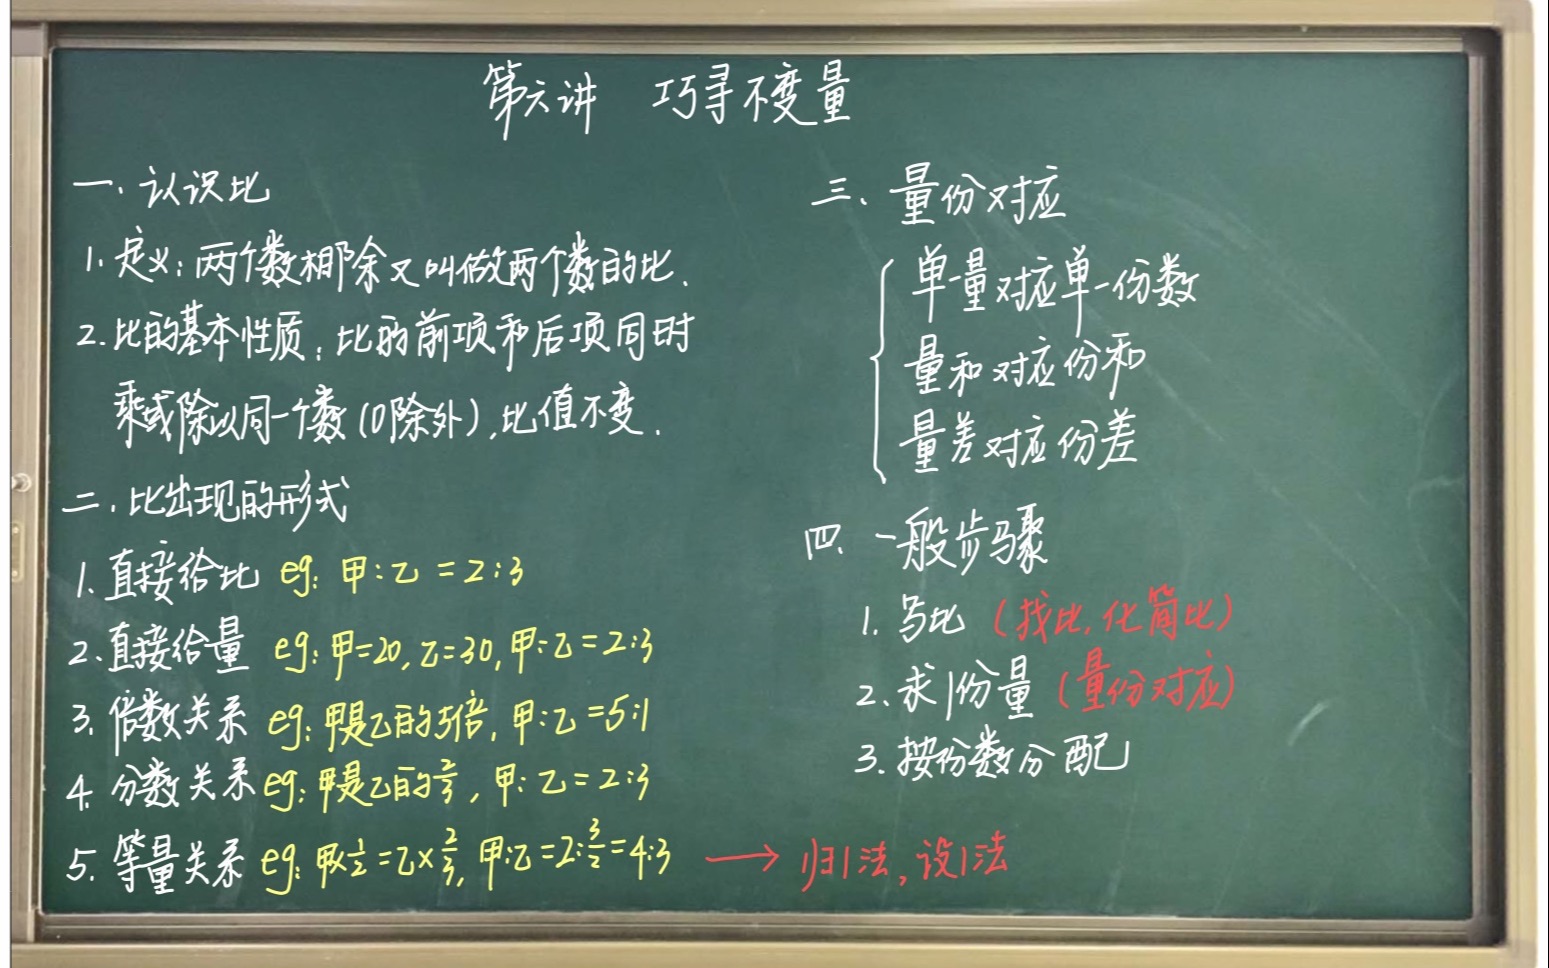 第六讲 巧寻不变量
一、认识比
1. 定义：两个数相除又叫做两个数的比.
2. 比的基本性质：比的前项和后项同时
乘或除以同一个数(0除外),比值不变.
二、比出现的形式
1. 直接给比 eg: 甲:乙=2:3
2. 直接给量 eg: 甲=20,乙=30,甲:乙=2:3
3. 倍数关系 eg: 甲是乙的5倍,甲:乙=5:1
4. 分数关系 eg: 甲是乙的2/3, 甲:乙=2:3
5. 等量关系 eg: 甲×1/2=乙×2/3, 甲:乙=2:3/2=4:3 → 归1法,设1法
三、量份对应
单一量对应单一份数
量和对应份和
量差对应份差
四、一般步骤
1. 写比 (找比,化简比)
2. 求1份量 (量份对应)
3. 按份数分配